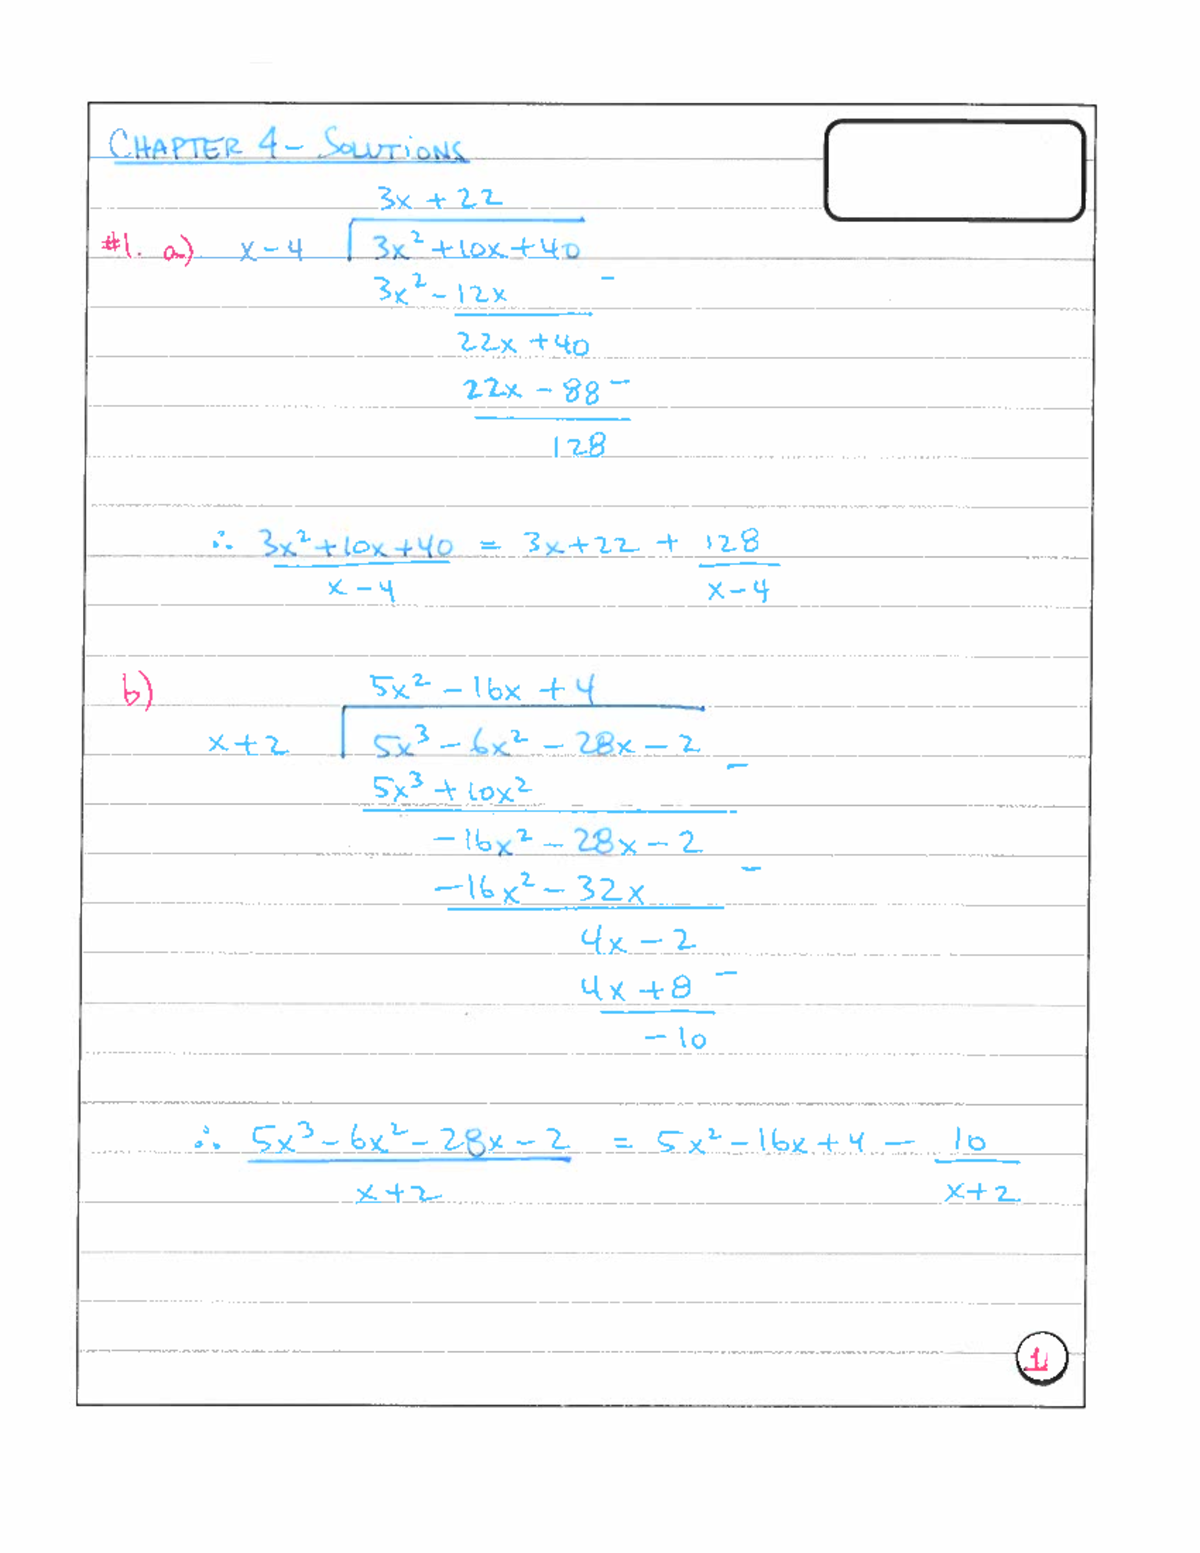 CHAPTER 4 - SOLUTIONS
3x + 22
#1. a) x - 4 3x² + 10x + 40
3x² - 12x -
22x + 40
22x - 88 -
128
∴ 3x² + 10x + 40 = 3x + 22 + 128
x - 4 x - 4
b) 5x² - 16x + 4
x + 2 5x³ - 6x² - 28x - 2
5x³ + 10x² -
-16x² - 28x - 2
-16x² - 32x -
4x - 2
4x + 8 -
-10
∴ 5x³ - 6x² - 28x - 2 = 5x² - 16x + 4 - 10
x + 2 x + 2
1